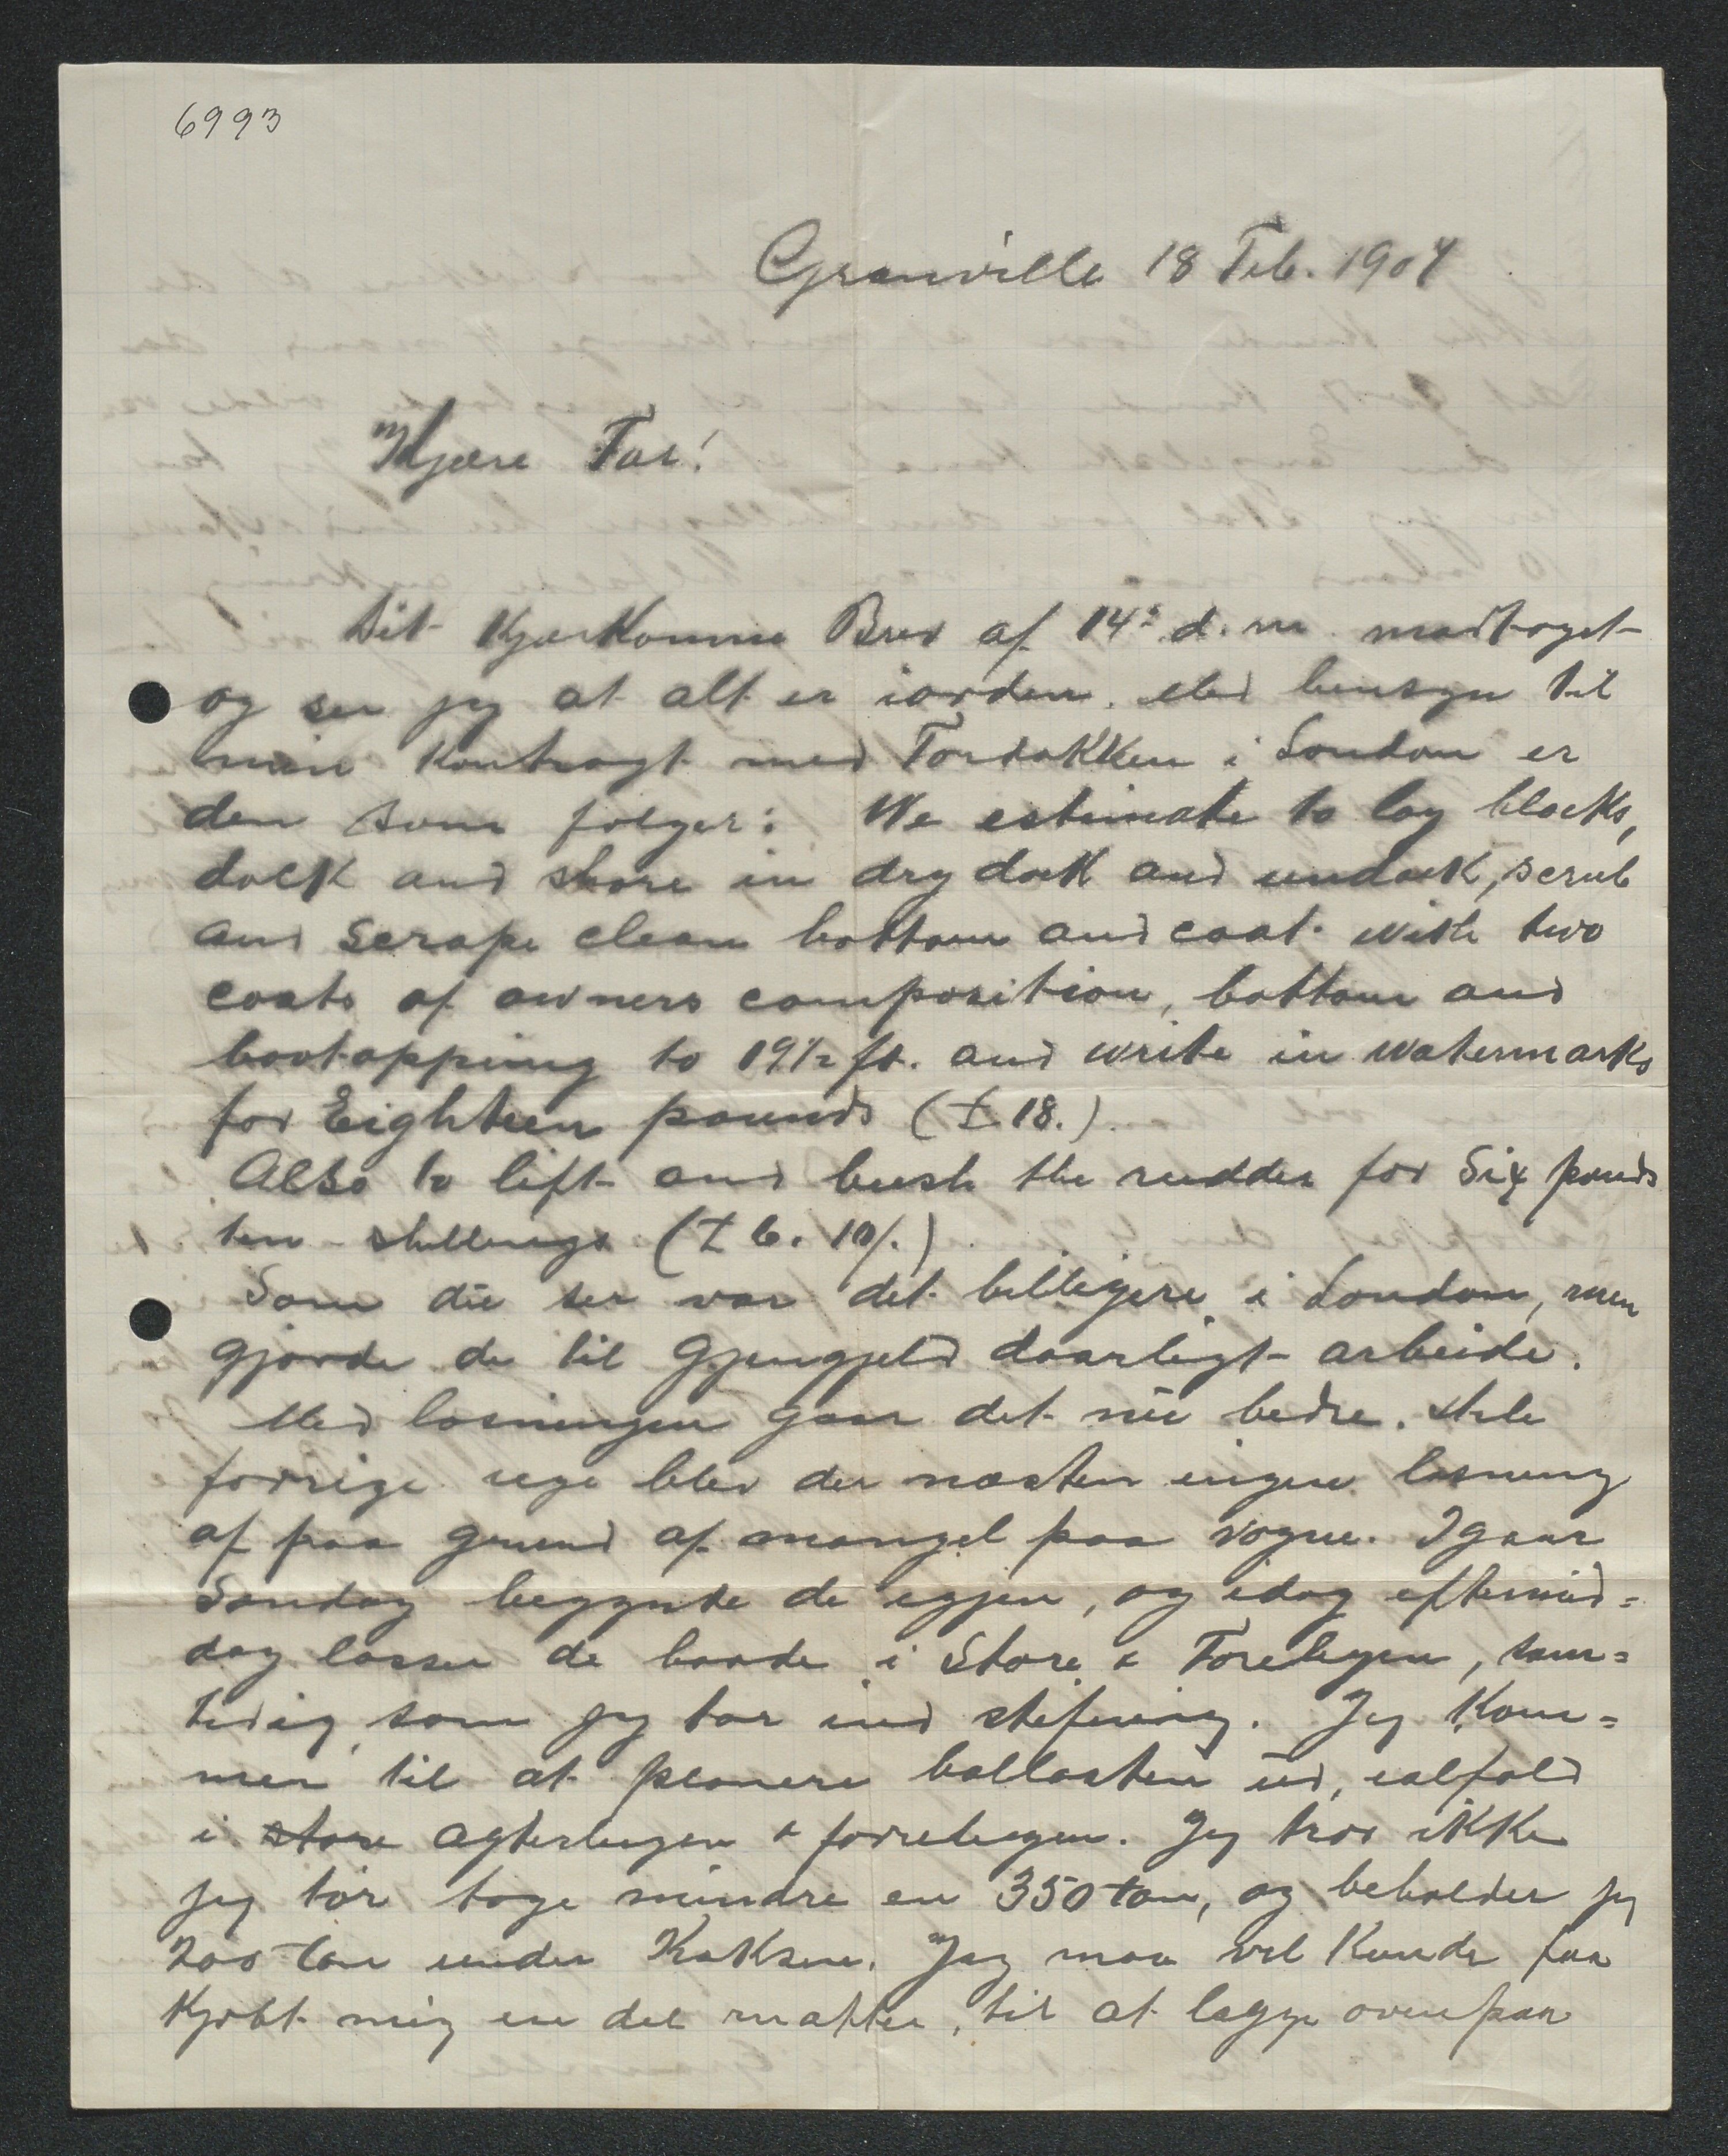 6993
Granville 18 Feb. 1907
Kjære Far!
Dit kjærkomne Brev af 14s d. m. modtaget
og ser jeg at alt er iorden. Med hensyn til
min kontragt med Tordokken i London er
den som følger: We estimate to lay blocks,
dock and shore in dry dock and undock, scrub
and scrape clean bottom and coat with two
coats of owners composition, bottom and
bootopping to 19½ ft. and write in watermarks
for Eighteen pounds (£ 18.).
Also to lift and bush the rudder for Six pounds
ten shillings (£ 6. 10/.)
Som du ser var det billigere i London, men
gjorde de til Gjengjeld daarligt arbeide.
Med losningen gaar det nu bedre. Hele
forrige uge blev der næsten ingen losning
af paa grund af mangel paa vogne. Igaar
Søndag begynte de igjen, og idag eftermid=
dag losser de baade i Store & Forelugen, sam=
tidig som jeg tar ind stifning. Jeg kom=
mer til at planere ballasten ud, ialfald
i store agterlugen & forrelugen. Jeg tror ikke
jeg tør tage mindre en 350 ton, og beholder jeg
200 ton under Kaksne. Jeg maa vel kunde faa
kjøbt mig en del matter, til at lægge ovenpaa